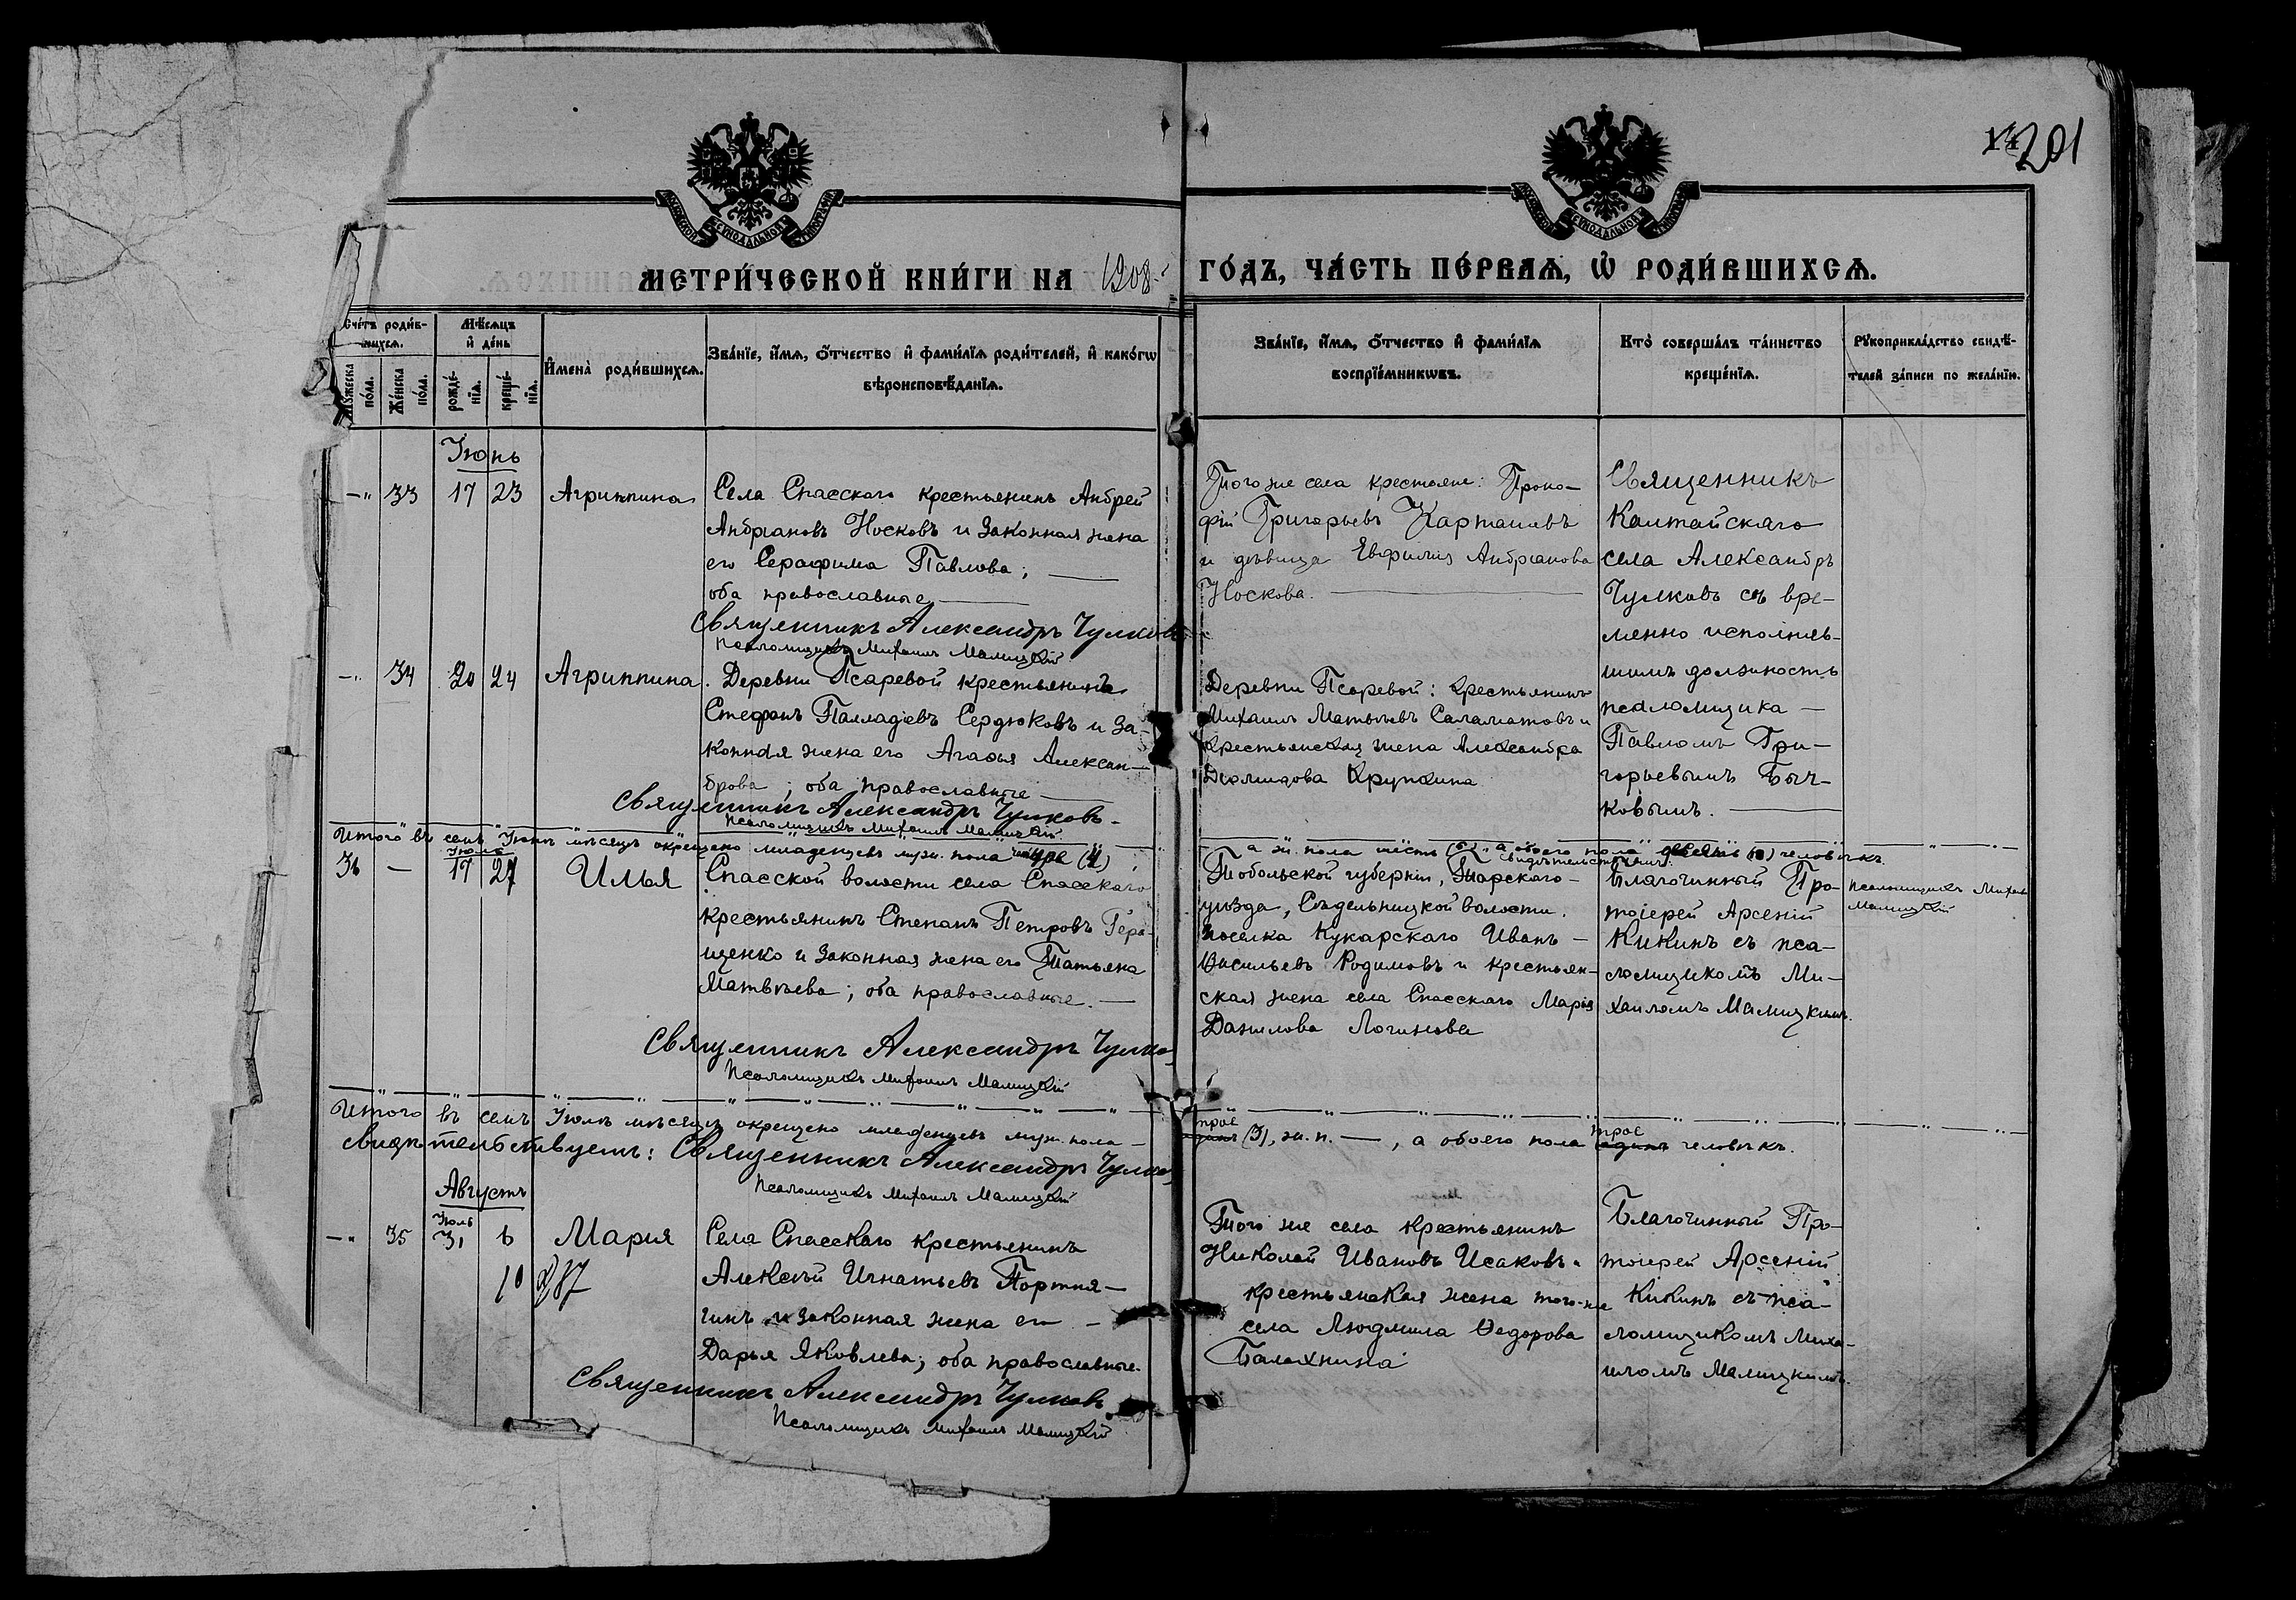 201
МОСКОВСКОЙ СѴНОДАЛЬНОЙ ТИПОГРАФІИ
МОСКОВСКОЙ СѴНОДАЛЬНОЙ ТИПОГРАФІИ
МЕТРИ́ЧЕСКОЙ КНИ́ГИ НА 1908 ГО́ДЪ, ЧА́СТЬ ПЕ́РВАѦ, Ѡ҆ РОДИ́ВШИХСѦ.
Сче́тъ роди́в-
шихсѧ.
Мѣ́сѧцъ
и҆ де́нь
И҆мена̀ роди́вшихсѧ.
Зва́нїе, и҆́мѧ, ѻ҆́тчество и҆ фами́лїѧ роди́телей, и҆ како́гѡ
вѣроисповѣ́данїѧ.
Зва́нїе, и҆́мѧ, ѻ҆́тчество и҆ фами́лїѧ
воспрїе́мникѡвъ.
Кто̀ соверша́лъ та́инство
креще́нїѧ.
Рꙋкоприкла́дство свидѣ́-
телей за́писи по жела́нїю.
Мꙋ́жеска
по́ла.
Же́нска
по́ла.
рожде́-
нїѧ.
креще́-
нїѧ.
Іюнь
—„ 33 17 23 Агриппина
Села Спасскаго крестьянинъ Андрей
Андріановъ Носковъ и законная жена
его Серафима Павлова;
оба православные
Священникъ Александръ Чулковъ
Псаломщикъ Михаилъ Малицкій
Того же села крестьяне: Проко-
фій Григорьевъ Карташевъ
и дѣвица Евфимія Андріанова
Носкова.
Священникъ
Калтайскаго
села Александръ
Чулковъ съ вре-
менно исполняв-
шимъ должность
псаломщика —
Павломъ Гри-
горьевымъ Быч-
ковымъ.
—„ 34 20 24 Агриппина.
Деревни Псаревой крестьянинъ
Стефанъ Палладіевъ Сердюковъ и за-
конная жена его Агафья Алексан-
дрова; оба православные
Священникъ Александръ Чулковъ.
Псаломщикъ Михаилъ Малицкій
Деревни Псаревой: крестьянинъ
Михаилъ Матвѣевъ Саламатовъ и
крестьянская жена Александра
Діомидова Крупкина
Итого въ семъ Іюнѣ мѣсяцѣ окрещено младенцевъ муж. пола четыре (4),
а ж. пола шесть (6), а обоего пола десять (10) человѣкъ.
Свидѣтельствуемъ:
Псаломщикъ Михаилъ
Малицкій
Іюль
36 — 17 27 Илья
Спасской волости села Спасскаго
крестьянинъ Степанъ Петровъ Гера-
щенко и законная жена его Татьяна
Матвѣева; оба православные.
Священникъ Александръ Чулковъ
Псаломщикъ Михаилъ Малицкій
Тобольской губерніи, Тарскаго —
уѣзда, Сѣдельницкой волости.
поселка Кукарскаго Иванъ —
Васильевъ Родимовъ и крестьян-
ская жена села Спасскаго Марія
Данилова Логинова
Благочинный Про-
тоіерей Арсеній
Кикинъ съ пса-
ломщикомъ Ми-
хаиломъ Малицкимъ.
Итого въ семъ Іюлѣ мѣсяцѣ окрещено младенцевъ муж. пола —
трое (3), ж. п. —, а обоего пола трое человѣкъ.
Свидѣтельствуемъ: Священникъ Александръ Чулковъ
Псаломщикъ Михаилъ Малицкій
Августъ
Іюль
—„ 35 31 6 Мария
Села Спасскаго крестьянинъ
Алексѣй Игнатьевъ Портня-
гинъ и законная жена его —
Дарья Яковлева; оба православные.
Священникъ Александръ Чулковъ
Псаломщикъ Михаилъ Малицкій
Того же села крестьянинъ
Николай Ивановъ Исаковъ и
крестьянская жена того-же
села Людмила Ѳедорова
Балахнина
Благочинный Про-
тоіерей Арсеній
Кикинъ съ пса-
ломщикомъ Миха-
иломъ Малицкимъ.